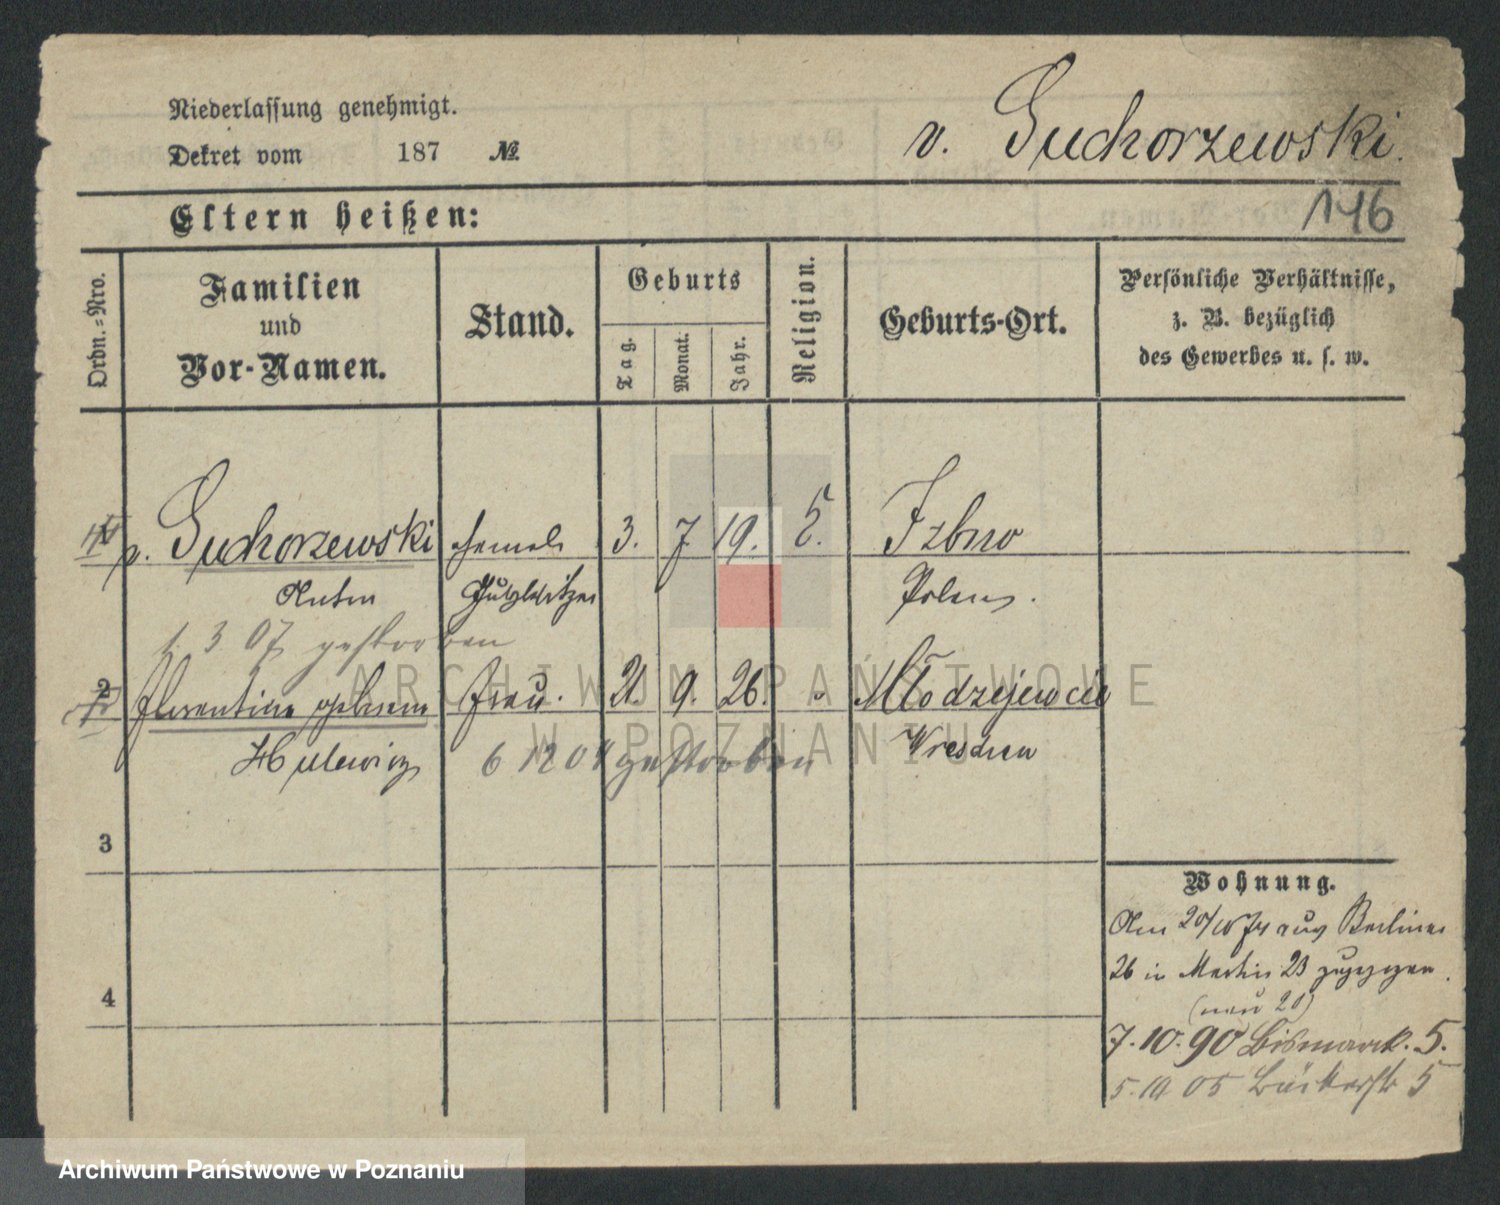 Niederlassung genehmigt.
Dekret vom 187 №
v. Suchorzewski.
Eltern heißen:
146
Ordn.-Nro.
Familien
und
Vor-Namen.
Stand.
Geburts
Tag.
Monat.
Jahr.
Religion.
Geburts-Ort.
Persönliche Verhältnisse,
z. B. bezüglich
des Gewerbes u. s. w.
v. Suchorzewski
Anton
ehemals
3. 7 19.
Polen.
1. 3 07 gestorben
2 Florentine geborene
Hulewicz
Frau.
21. 9. 26.
Wreschen
6 12 04 gestorben
3
4
Wohnung.
Am aus Berliner
26 in Martin 23 zugezogen.
(neu 20)
7. 10. 90 Bismarck. 5.
5. 10 05 Bäckerstr 5
ARCHIWUM PAŃSTWOWE
W POZNANIU
Archiwum Państwowe w Poznaniu